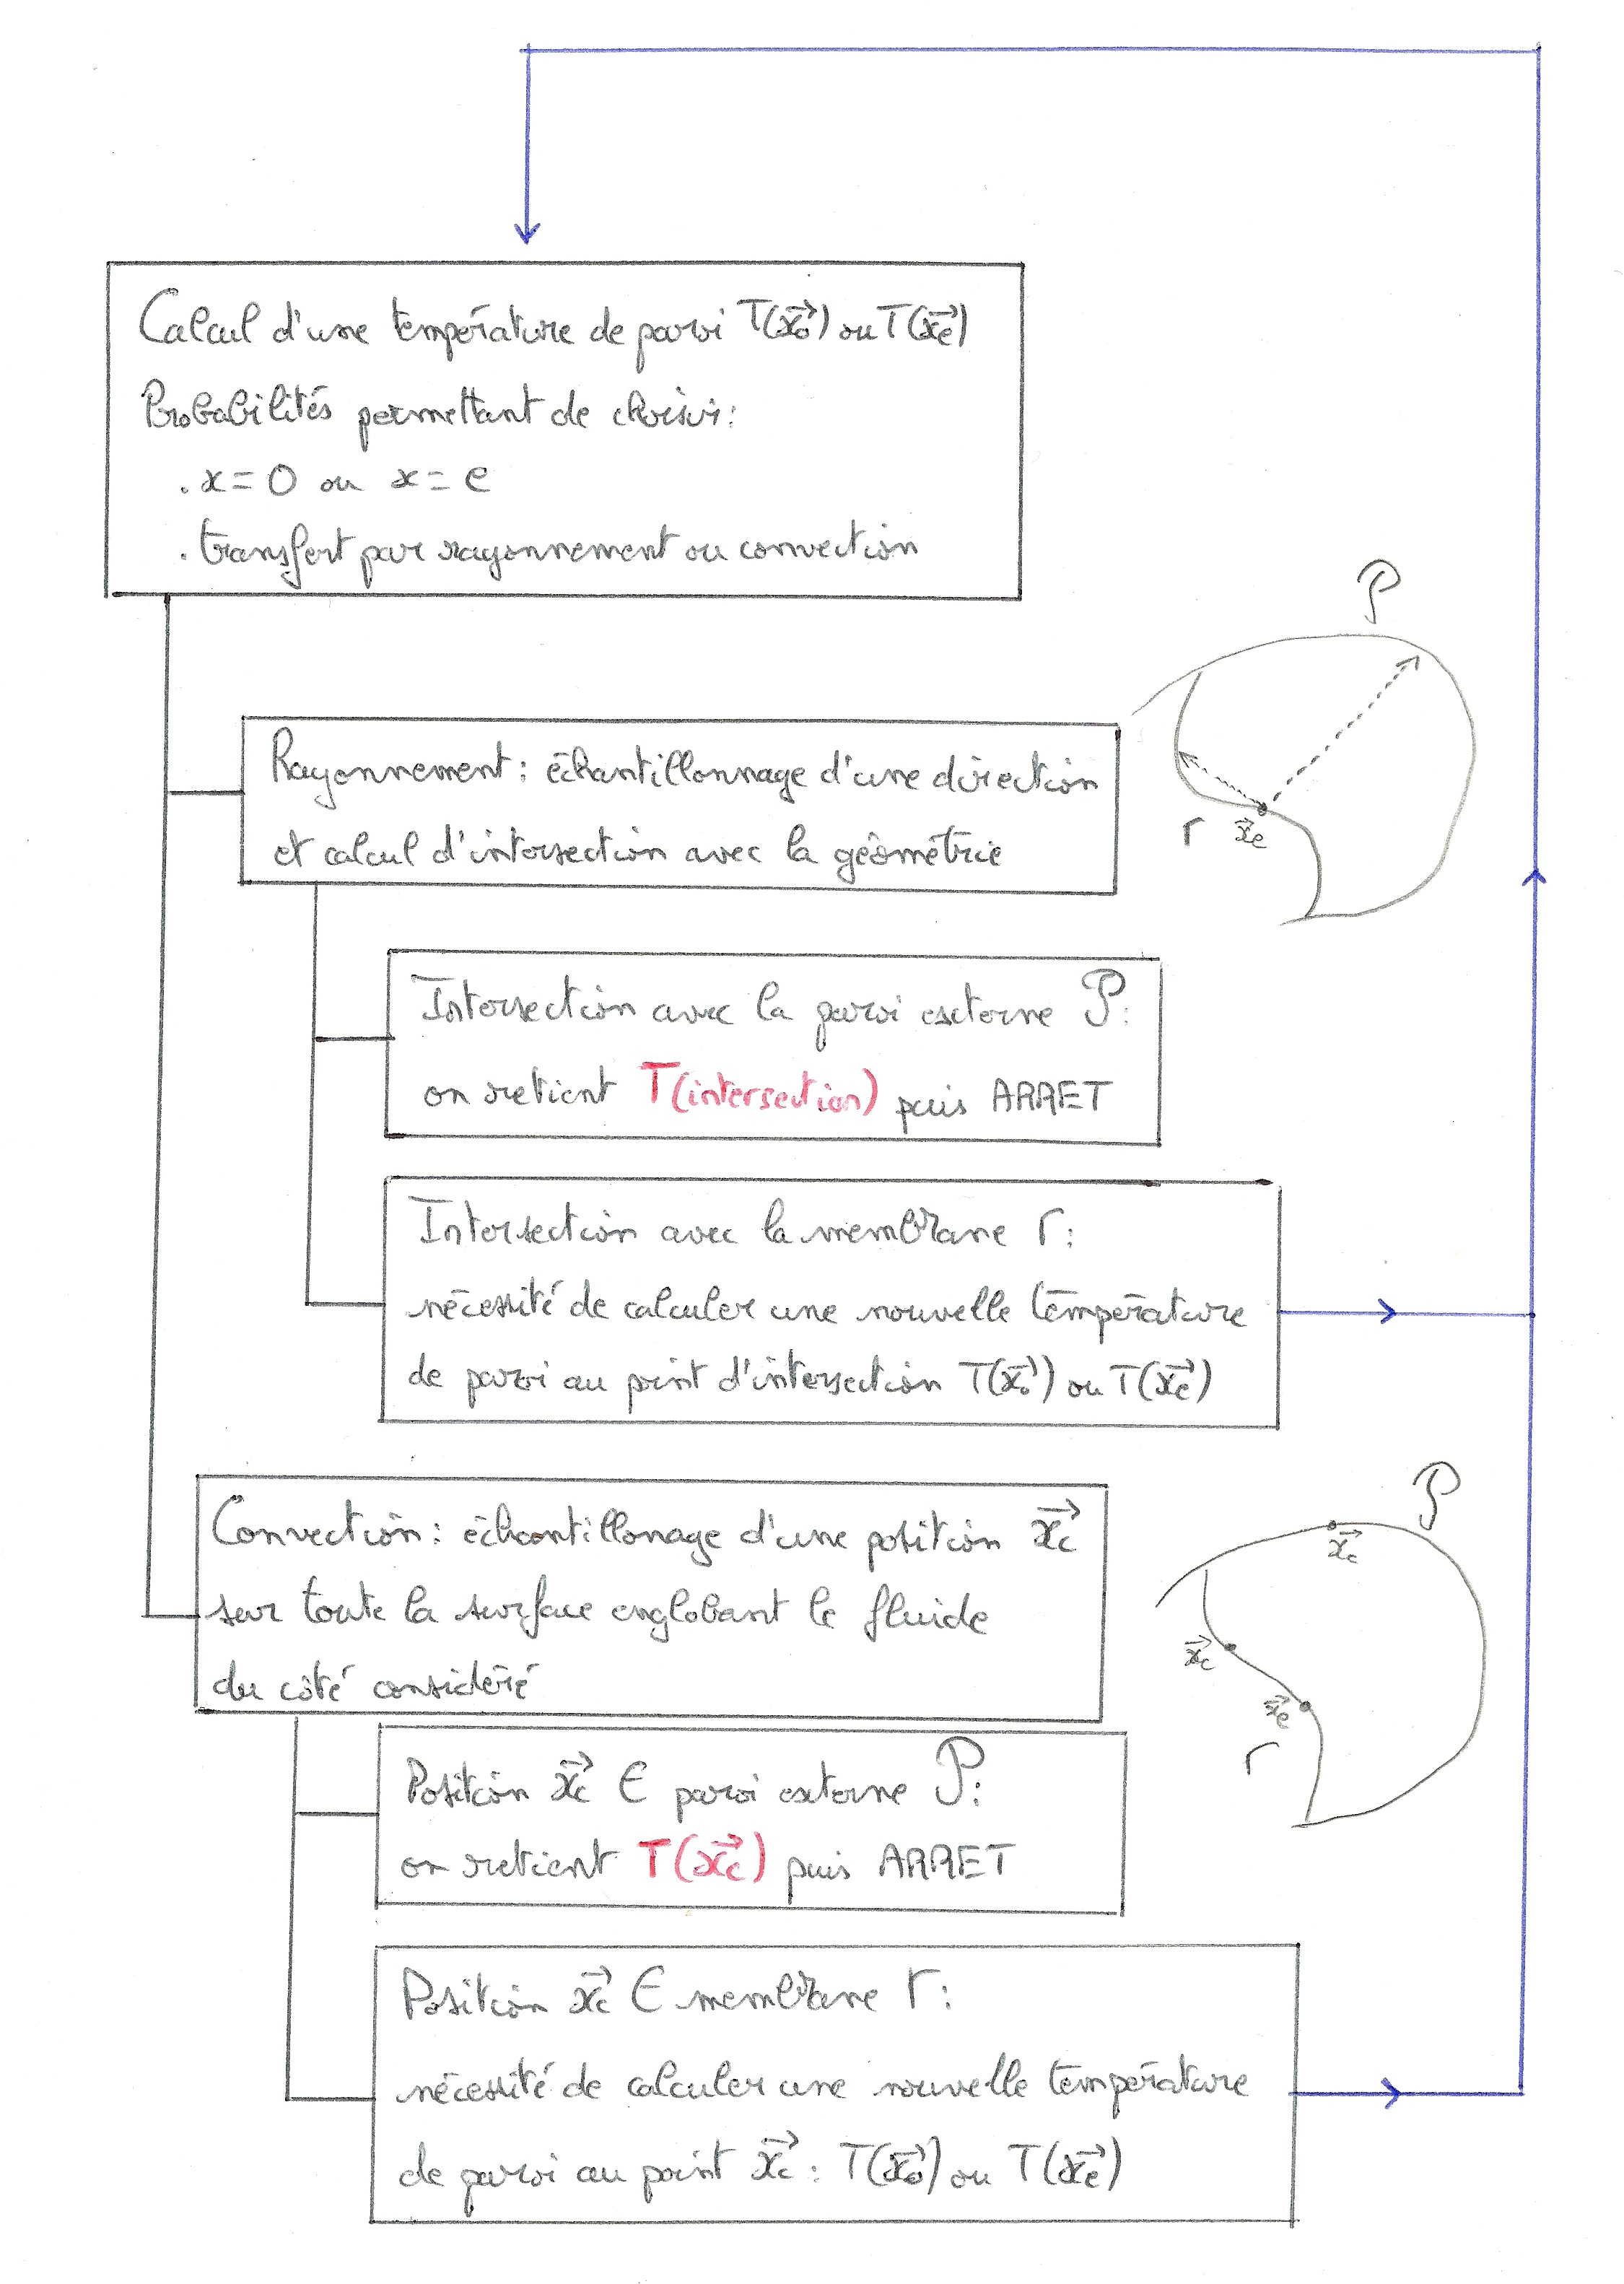 Calcul d'une température de paroi T(x⃗₀) ou T(x⃗ₑ)
Probabilités permettant de choisir:
. x = 0 ou x = e
. transfert par rayonnement ou convection
P
Rayonnement: échantillonnage d'une direction
et calcul d'intersection avec la géométrie
Γ x⃗ₑ
Intersection avec la paroi externe P:
on retient T(intersection) puis ARRET
Intersection avec la membrane Γ:
nécessité de calculer une nouvelle température
de paroi au point d'intersection T(x⃗₀) ou T(x⃗ₑ)
P
Convection: échantillonage d'une position x⃗c
sur toute la surface englobant le fluide
du côté considéré
x⃗c
x⃗c
x⃗ₑ
Γ
Position x⃗c ∈ paroi externe P:
on retient T(x⃗c) puis ARRET
Position x⃗c ∈ membrane Γ:
nécessité de calculer une nouvelle température
de paroi au point x⃗c : T(x⃗₀) ou T(x⃗ₑ)